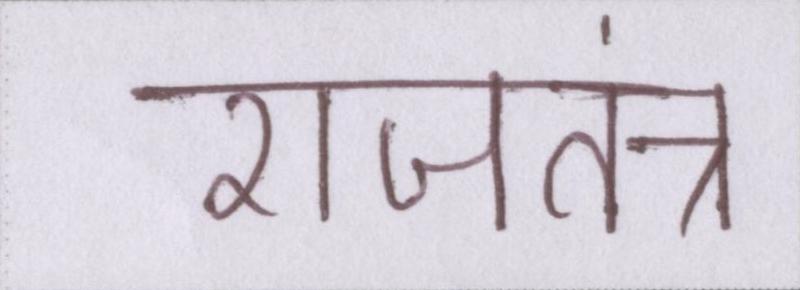 राजतंत्र